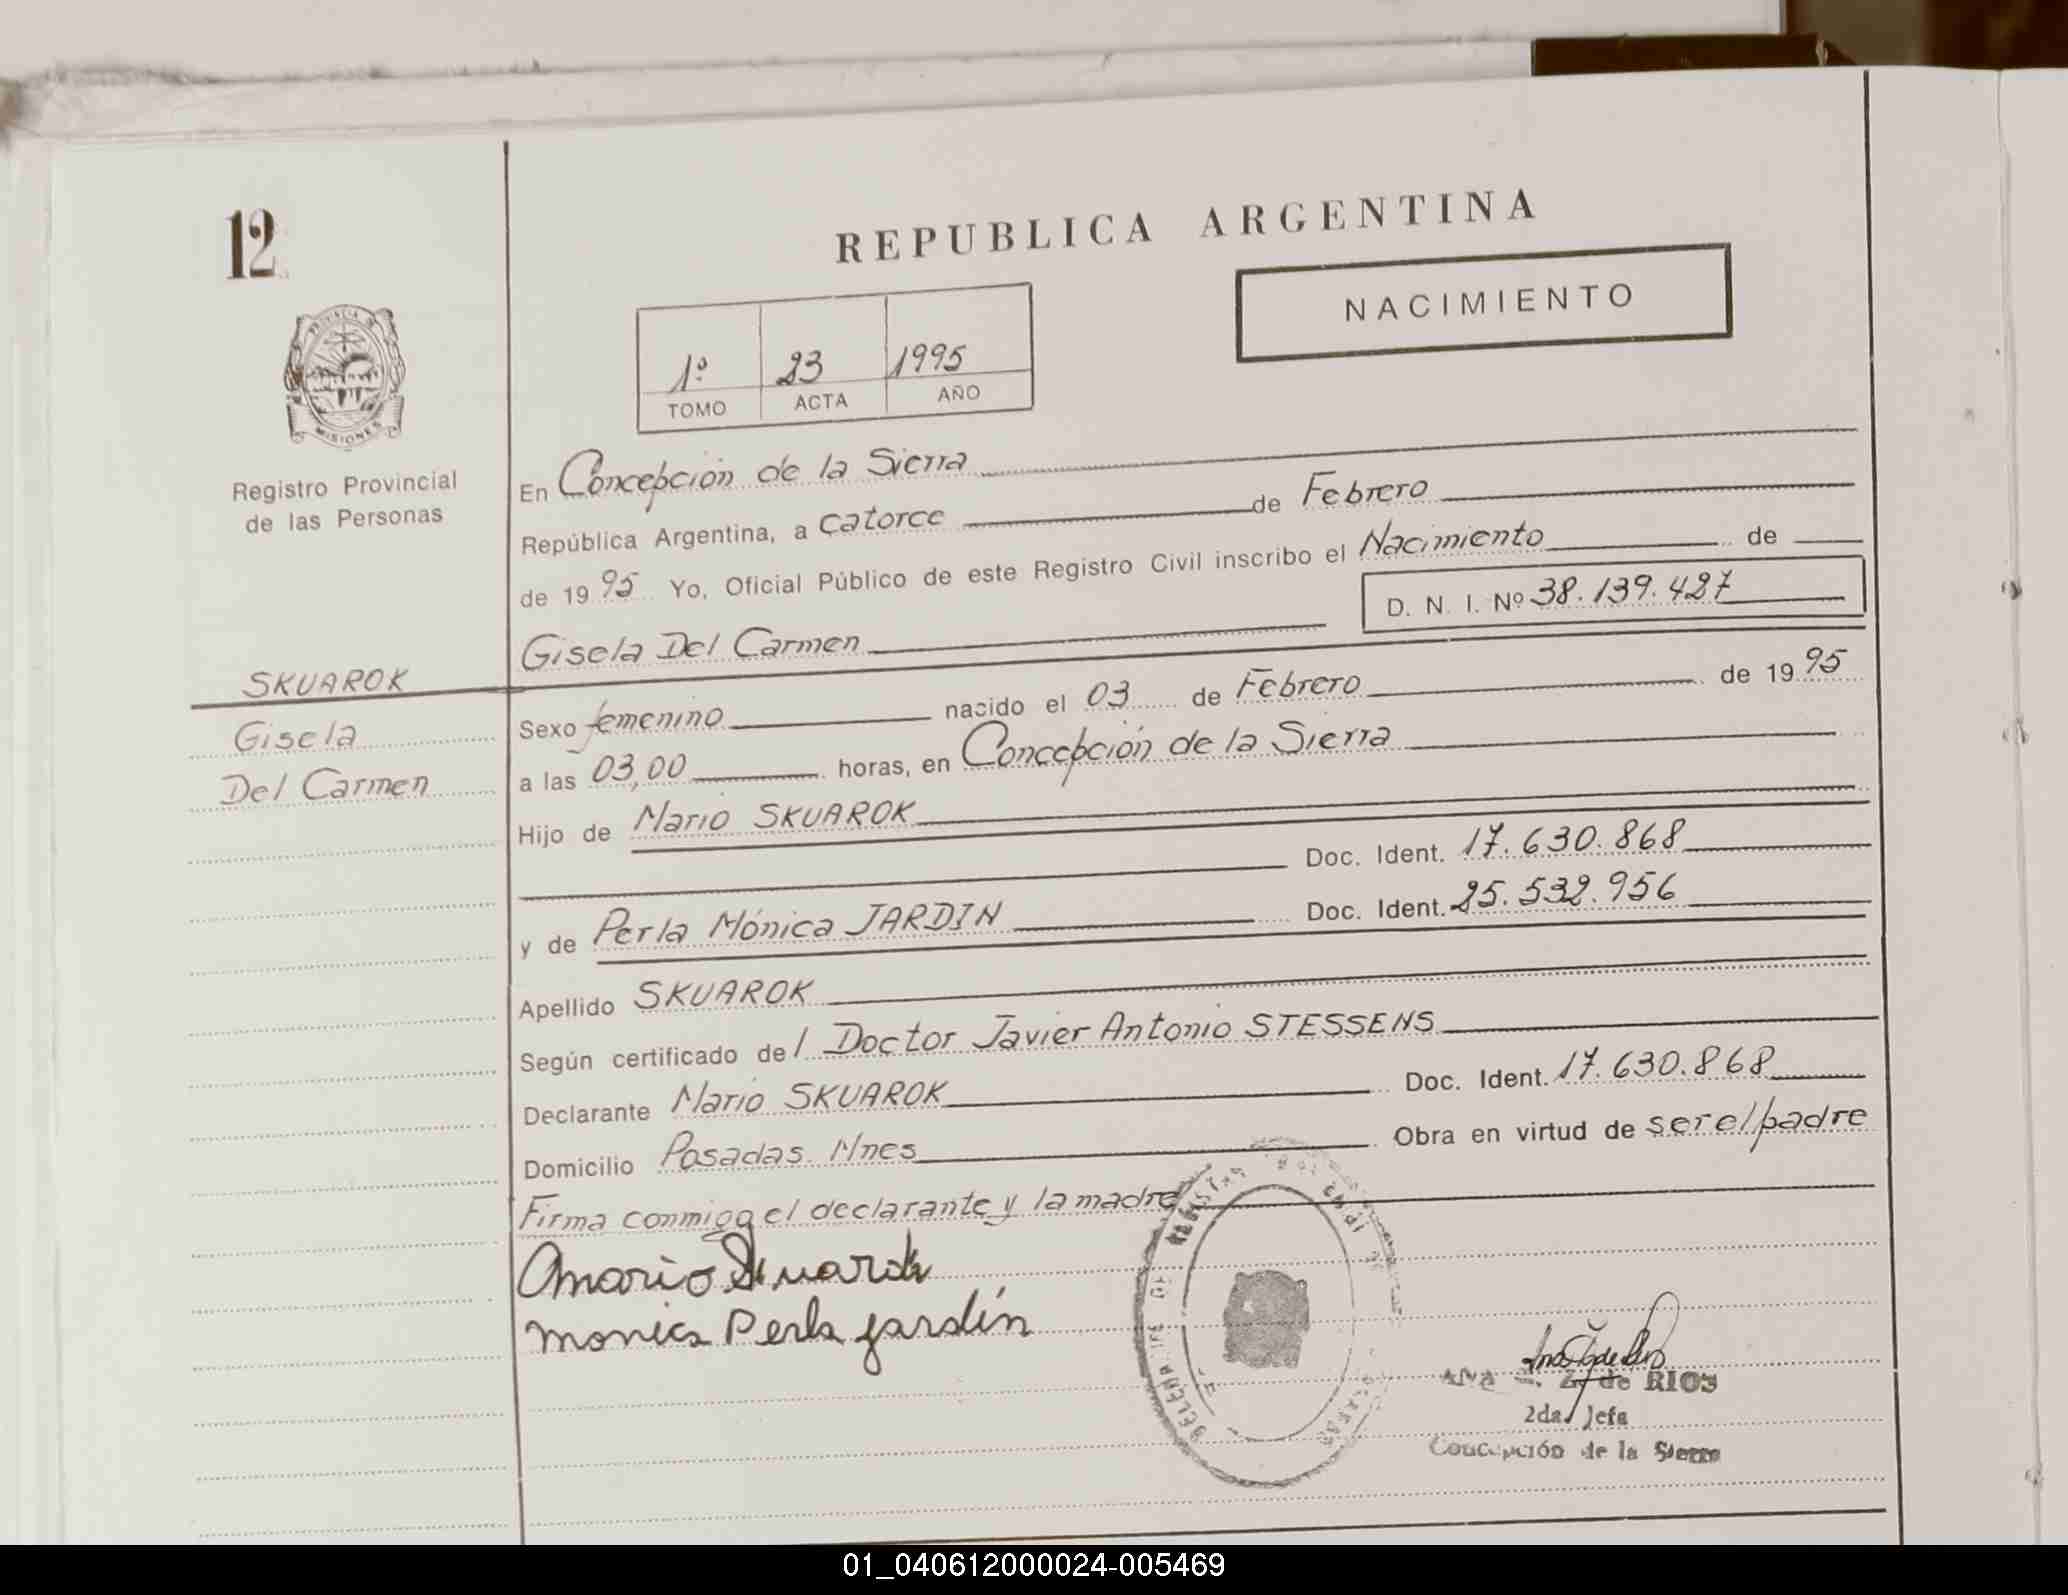 12
REPUBLICA ARGENTINA
NACIMIENTO
1º 23 1995
TOMO ACTA AÑO
PROVINCIA DE
MISIONES
Registro Provincial
de las Personas
SKUAROK
Gisela
Del Carmen
En Concepción de la Sierra
República Argentina, a catorce de Febrero
de 1995 Yo, Oficial Público de este Registro Civil inscribo el Nacimiento de
D. N. I. Nº 38.139.427
Gisela Del Carmen
Sexo femenino nacido el 03 de Febrero de 1995
a las 03,00 horas, en Concepción de la Sierra
Hijo de Mario SKUAROK
Doc. Ident. 17.630.868
y de Perla Mónica JARDIN Doc. Ident. 25.532.956
Apellido SKUAROK
Según certificado del Doctor Javier Antonio STESSENS
Declarante Mario SKUAROK Doc. Ident. 17.630.868
Domicilio Posadas Mnes Obra en virtud de ser el padre
Firma conmigo el declarante y la madre
Mario Skuarok
Monica Perla Jardín
de RIOS
2da. Jefa
Concepción de la Sierra
01_040612000024-005469